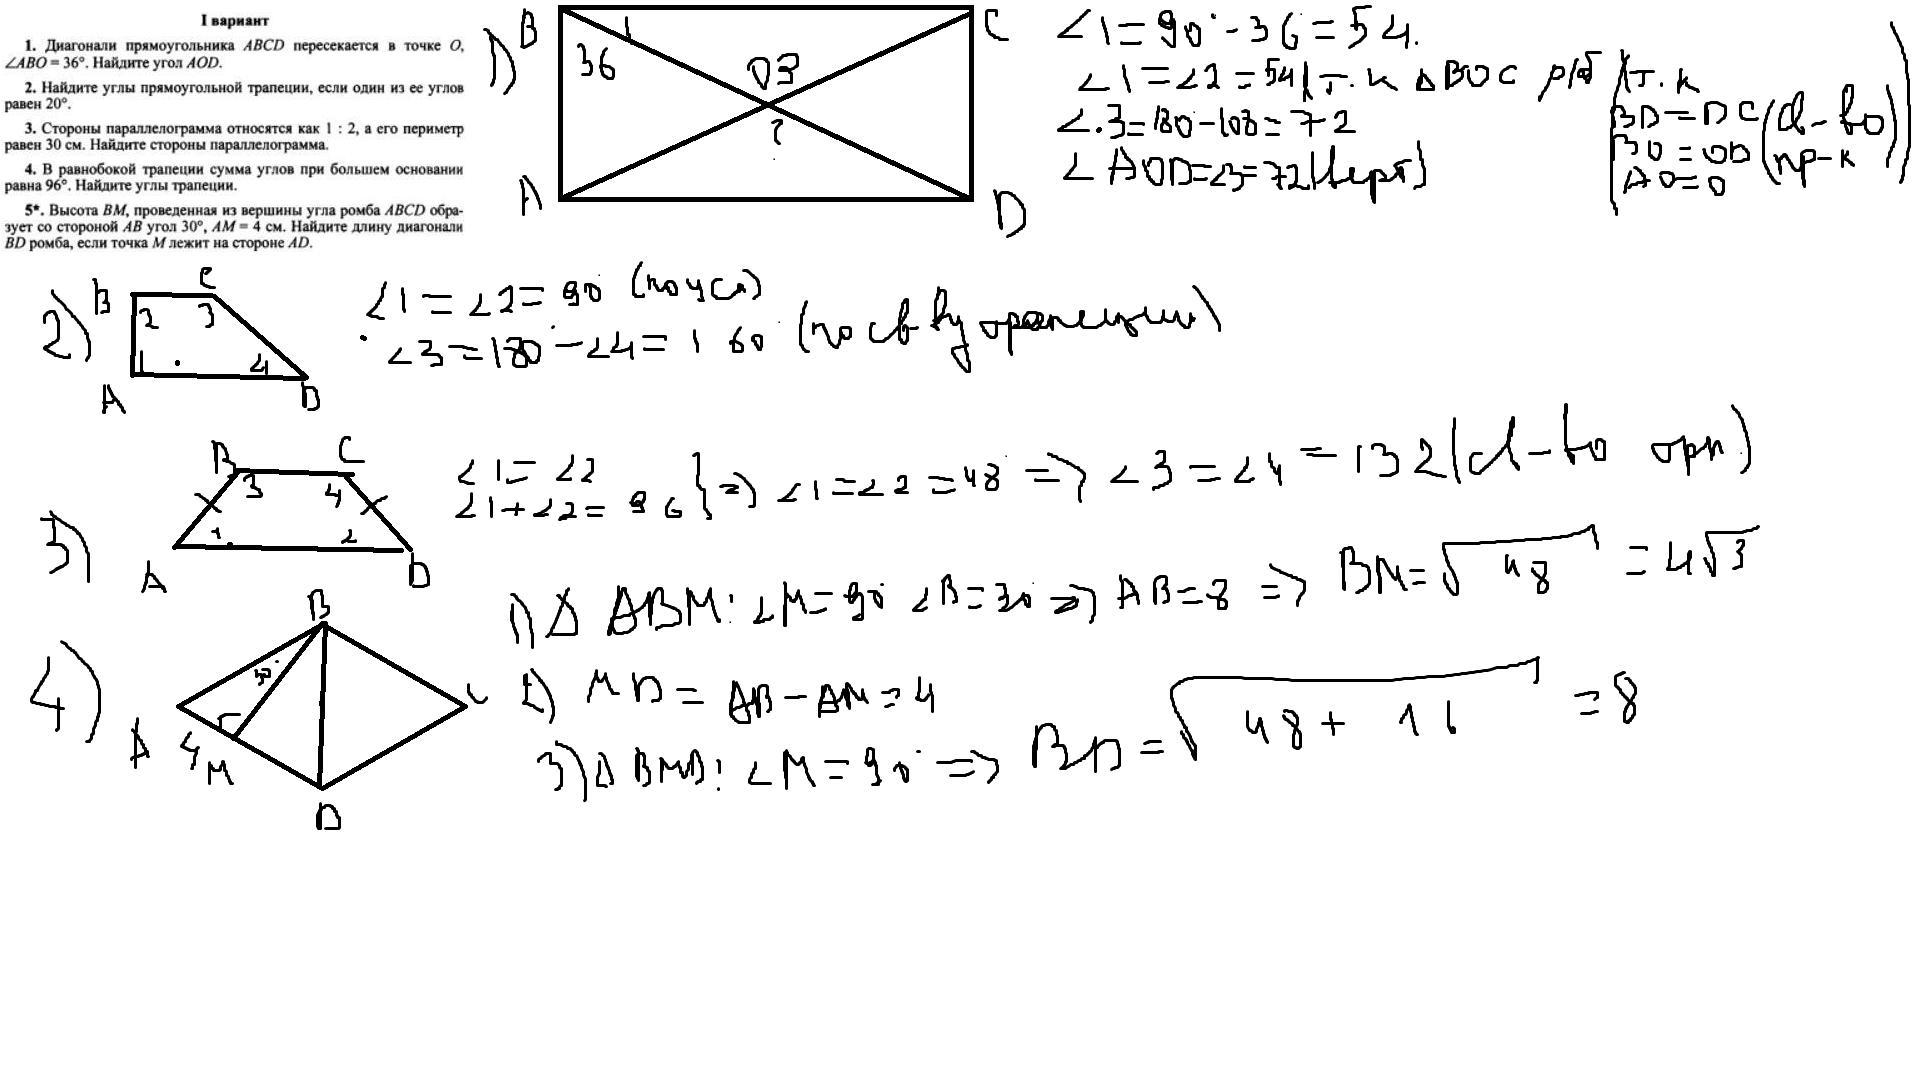 I вариант
1. Диагонали прямоугольника ABCD пересекается в точке O,
∠ABO = 36°. Найдите угол AOD.
2. Найдите углы прямоугольной трапеции, если один из ее углов
равен 20°.
3. Стороны параллелограмма относятся как 1 : 2, а его периметр
равен 30 см. Найдите стороны параллелограмма.
4. В равнобокой трапеции сумма углов при большем основании
равна 96°. Найдите углы трапеции.
5*. Высота BM, проведенная из вершины угла ромба ABCD обра-
зует со стороной AB угол 30°, AM = 4 см. Найдите длину диагонали
BD ромба, если точка M лежит на стороне AD.
1)
B
C
1
36
O3
?
A
D
∠1=90°-36=54.
∠1=∠2=54(т.к ΔBOC р/б (т.к
∠.3=180-108=72
∠AOD=∠3=72(верт)
BO=OD
AO=O
пр-к
2)
B
C
2
3
1
4
A
D
∠1=∠2=90 (по усл)
∠3=180°-∠4=160°(по св-ву
3)
B
C
3
4
1
2
A
D
∠1=∠2
∠1+∠2=96 }=>∠1=∠2=48=>∠3=∠4=132
4)
B
30°
A
4
M
D
1)Δ ABM: ∠M=90° ∠B=30=>AB=8=>BM=√48=4√3
2) MD=AB-AM=4
3)Δ BMD: ∠M=90°=>BD=√48+16=8